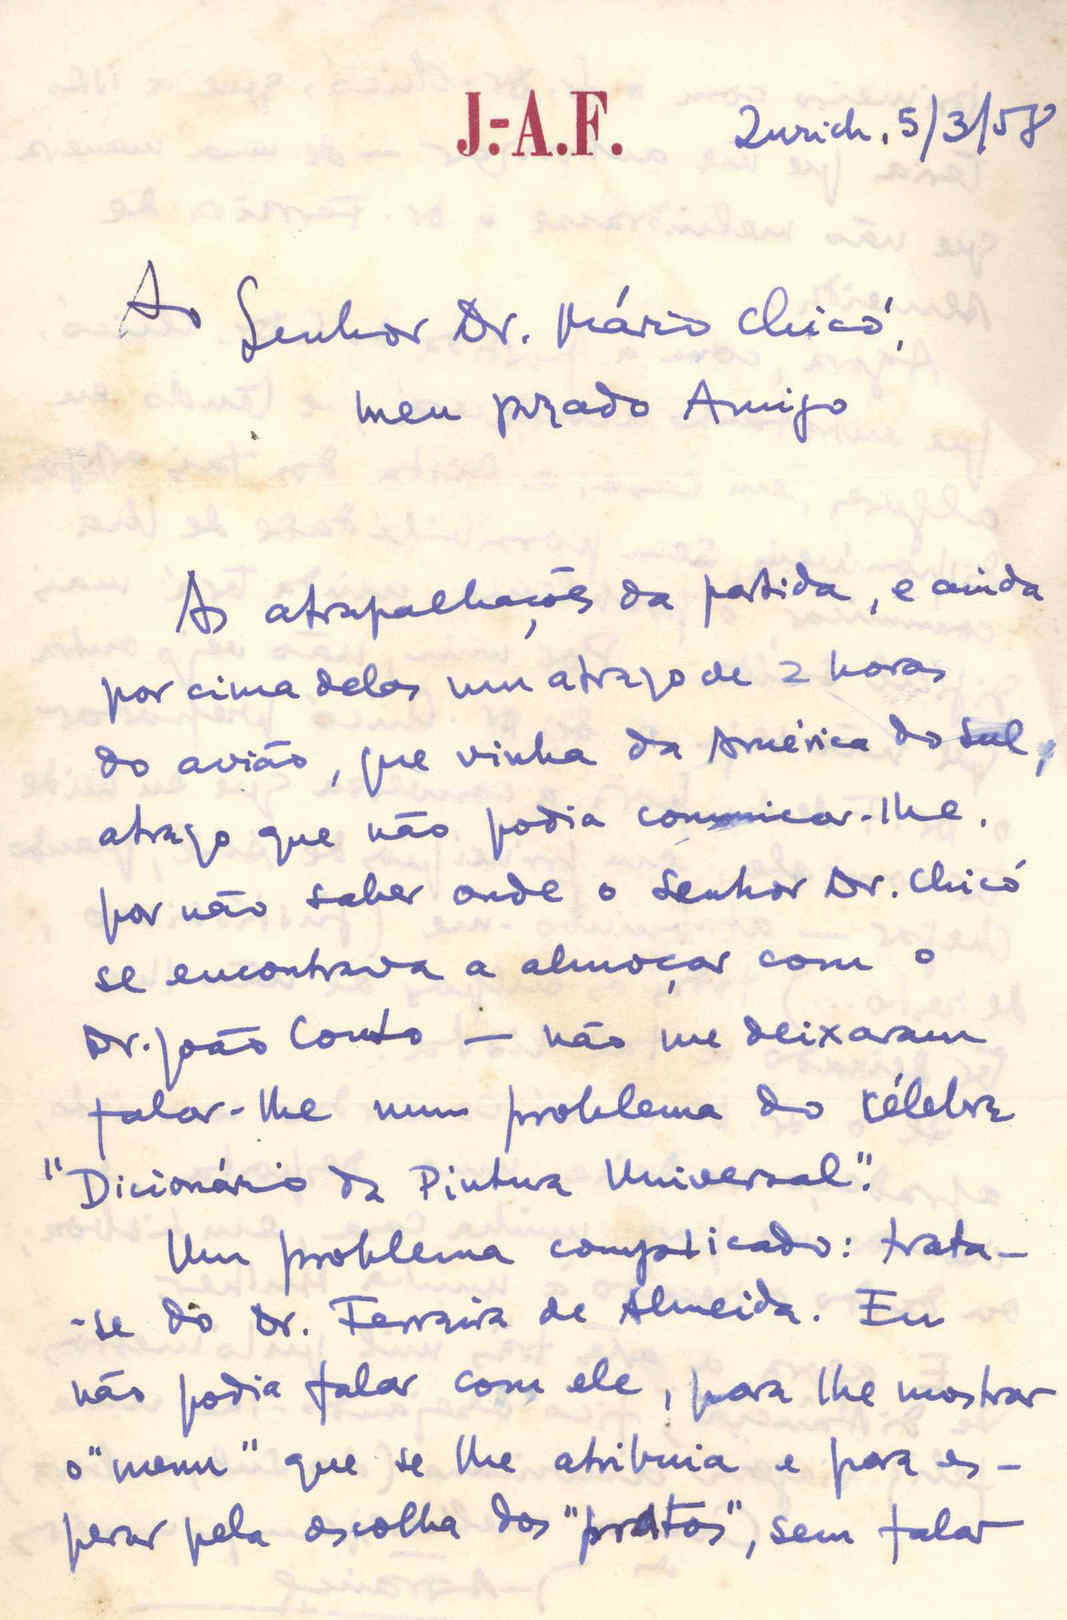 J.-A.F.
Zurich, 5/3/58
Ao Senhor Dr. Mário Chicó,
meu prezado Amigo
As atrapalhações da partida, e ainda
por cima delas um atrazo de 2 horas
do avião, que vinha da América do Sul,
atrazo que não podia comunicar-lhe,
por não saber onde o Senhor Dr. Chicó
se encontrava a almoçar com o
Dr. João Couto — não me deixaram
falar-lhe num problema do célebre
"Dicionário da Pintura Universal".
Um problema complicado: trata-
-se do Dr. Ferreira de Almeida. Eu
não podia falar com ele, para lhe mostrar
o "menu" que se lhe atribuia e para es-
perar pela escolha dos "pratos", sem falar